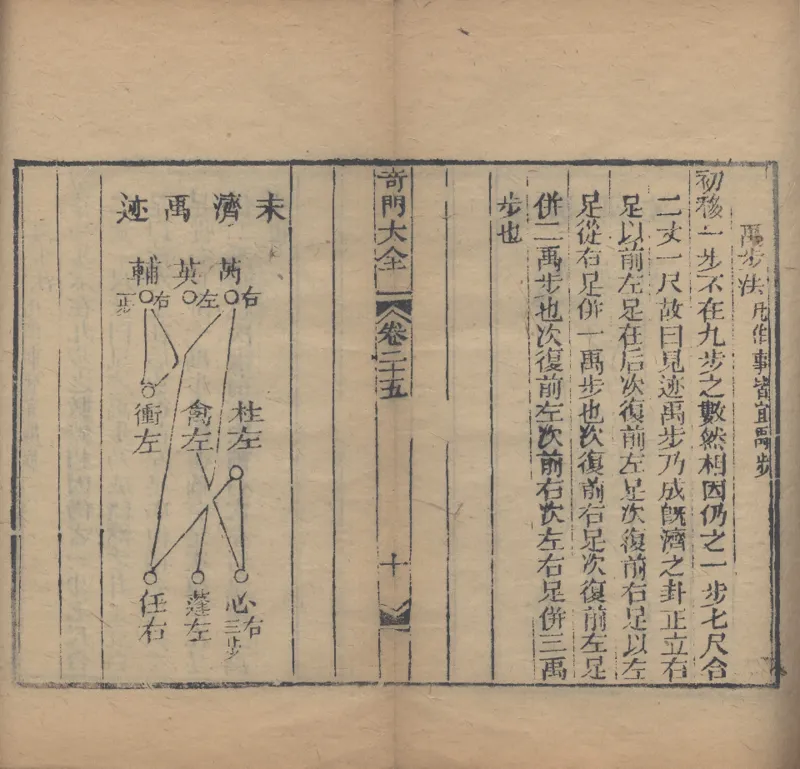 禹步法凡作事皆宜禹步
初移一步不在九步之數然相因仍之一步七尺合
二丈一尺故曰見迹禹步乃成旣濟之卦正立右
足以前左足在后次復前左足次復前右足以左
足從右足併一禹步也次復前右足次復前左足
併二禹步也次復前左次前右次左右足併三禹
步也
奇門大全
卷二十五
十
未濟禹迹
芮右
英左
輔右一步
柱左
禽左
衝左
心右三步
蓬左
任右